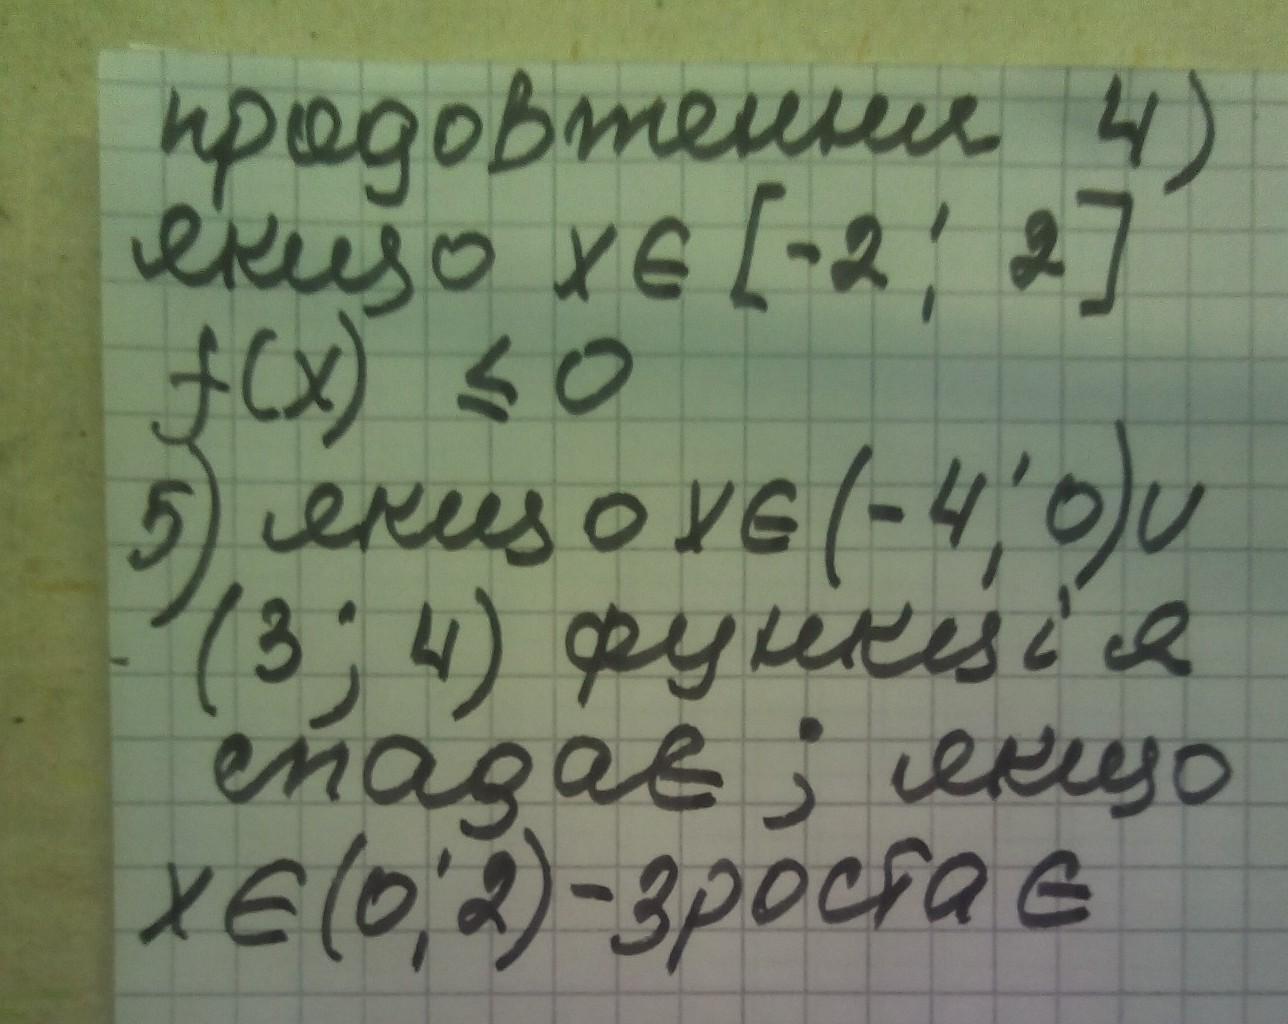 продовження 4)
якщо x∈[-2; 2]
f(x) ≤ 0
5) якщо x∈(-4; 0)∪
(3; 4) функція
спадає; якщо
x∈(0; 2) - зростає